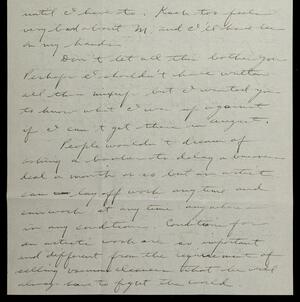 until I have to. Kack too feels
very bad about M. and I'll have her
on my hands.
Don't let all this bother you
Perhaps I shouldn't have written
all this mixup but I wanted you
to know what I was up against
if I can't get there in August.
People wouldn't dream of
asking a banker to delay a business
deal a month or so but an artist
can lay off work anytime and
can work at any time anywhere
in any condition. Conditions for
an artists work are as important
and different from the requirement of
selling vacuum cleaners that he will
always have to fight the world